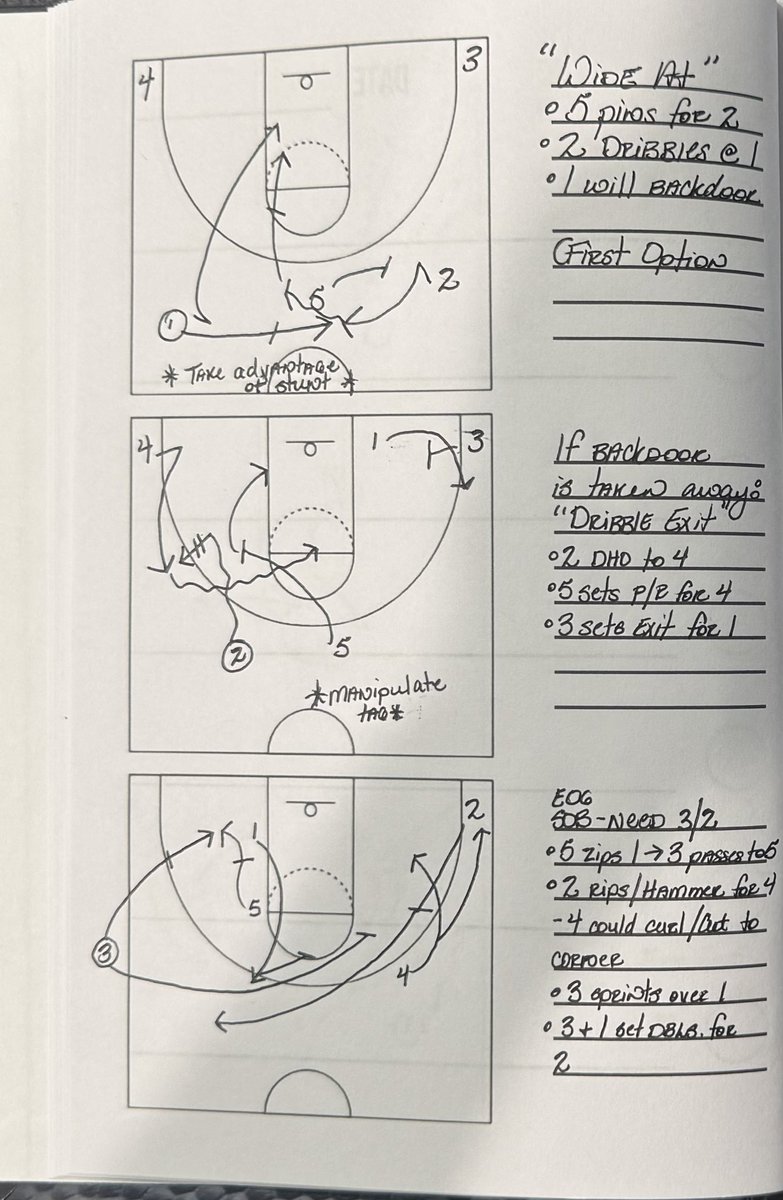 4
3
"WIDE AT"
• 5 pins for 2
• 2 DRIBBLES @ 1
• 1 will BACKDOOR
(First Option
5
2
1
* TAKE advantage
of stunt *
4
1
3
If BACKDOOR
is taken away:
"DRIBBLE Exit"
• 2 DHO to 4
• 5 sets P/R for 4
• 3 sets Exit for 1
2
5
*MANIPULATE
TAG*
2
1
5
3
4
EOG
SOB - NEED 3/2
• 5 zips 1 → 3 passes to 5
• 2 Rips/HAMMER for 4
- 4 could curl/cut to
CORNER
• 3 sprints over 1
• 3 + 1 set DBLS. for
2
DATE